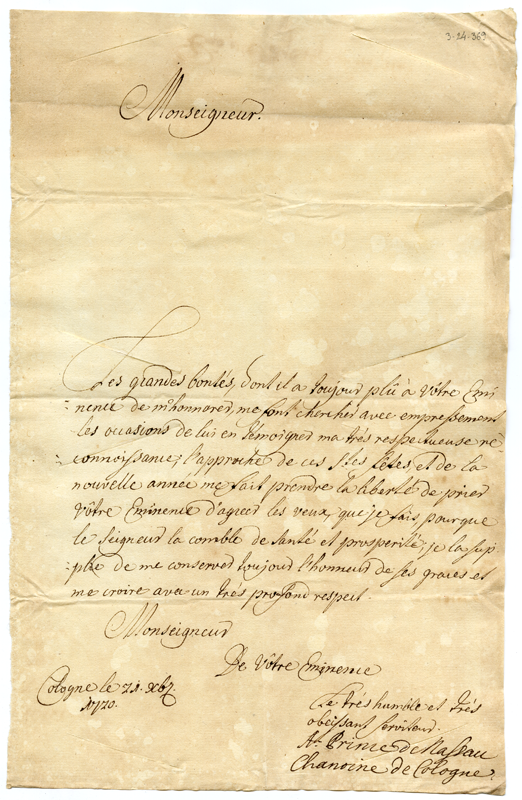 3-24-369
Monseigneur.
Les grandes bontés, dont il a toujour plû à Vôtre Emi
nence de m'honnorer, me font chercher avec empressement
les occasions de lui en témoigner ma trés respectueuse re
connoissance; l'approche de ces Stes fêtes, et de la
nouvelle année me fait prendre la liberté de prier
Vôtre Eminence d'agreer les veux, que je fais, pourque
le Seigneur la comble de santé et prosperité; je la sup
plie de me conserver toujour l'honneur de ses graces et
me croire avec un trés profond respect.
Monseigneur
De Vôtre Eminence
Cologne le 21. Xbr.
1720.
Le trés humble et trés
obeissant serviteur.
Prince de Nassau
Chanoine de Cologne.